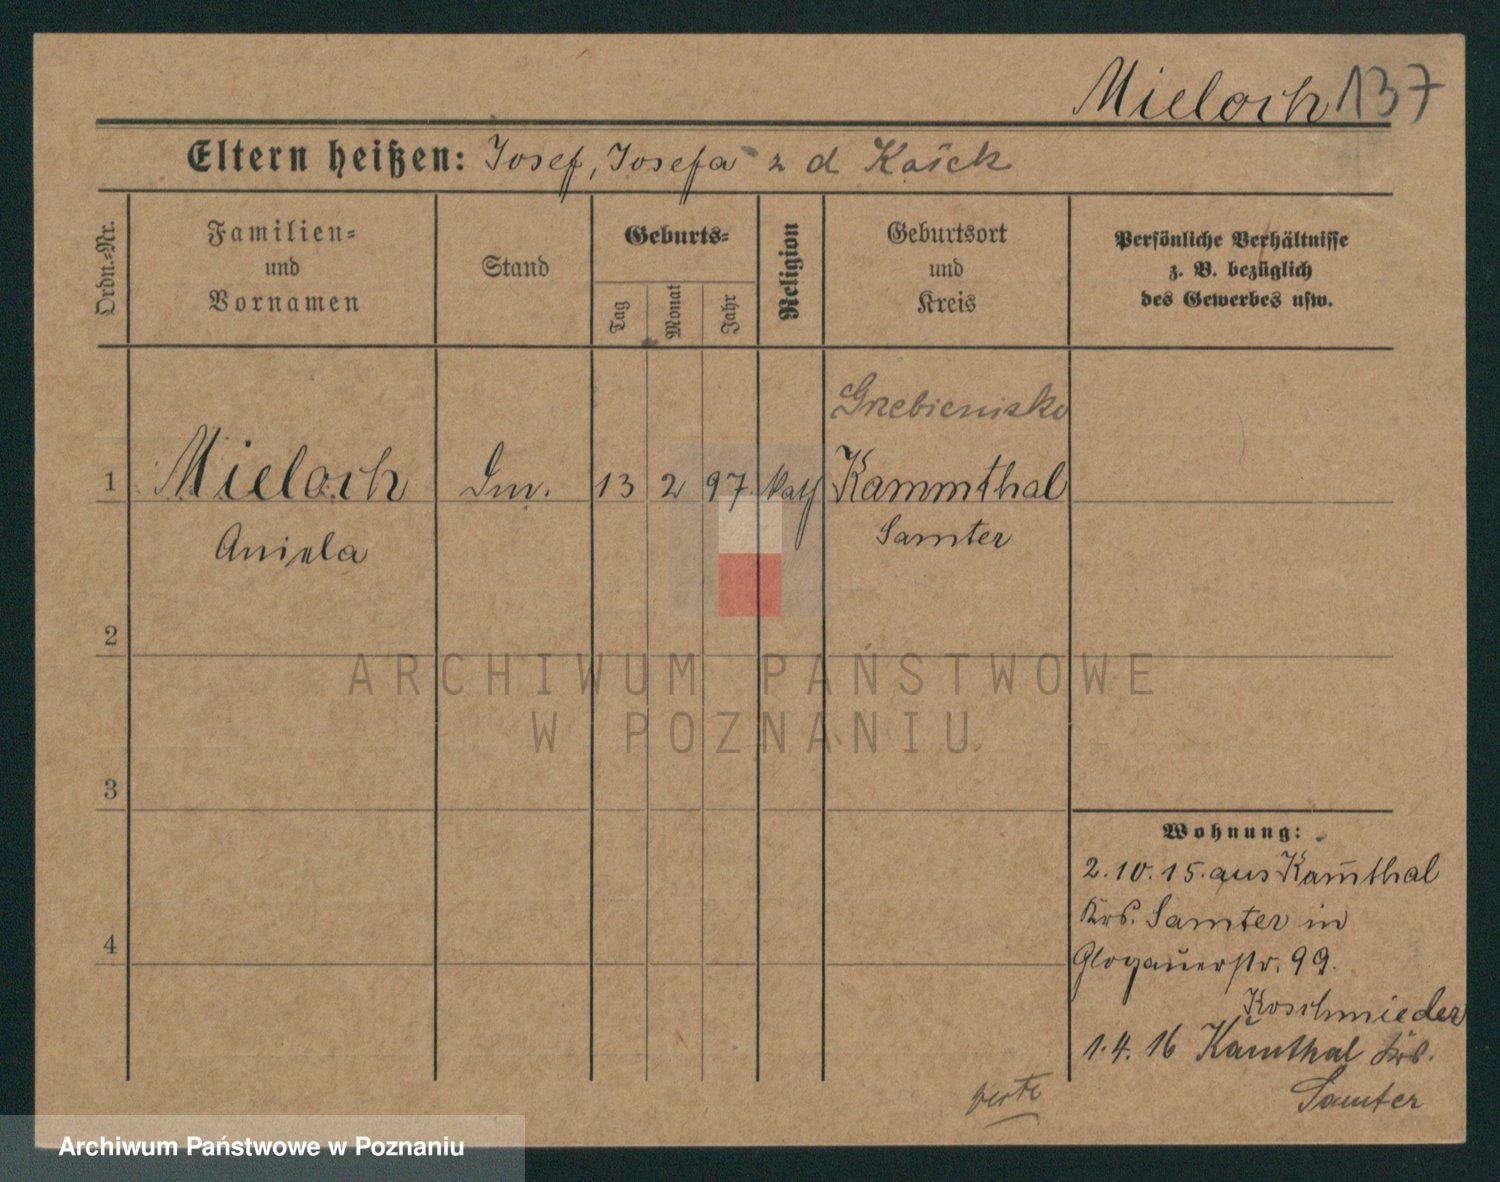 Mieloch 137
Eltern heißen: Josef, Josefa z d Kasick
Ordn.-Nr.
Familien-
und
Vornamen
Stand
Geburts-
Tag
Monat
Jahr
Religion
Geburtsort
und
Kreis
Persönliche Verhältnisse
z. B. bezüglich
des Gewerbes usw.
Grzebienisko
1 Mieloch 13 2 97 kath Kammthal
Aniela Samter
2
ARCHIWUM PAŃSTWOWE
W POZNANIU
3
Wohnung:
2.10.15. aus Kam̄thal
Krs. Samter in
4
Glogauerstr. 99.
Koschmieder
1.4.16 Kamthal Krs.
Samter
Archiwum Państwowe w Poznaniu